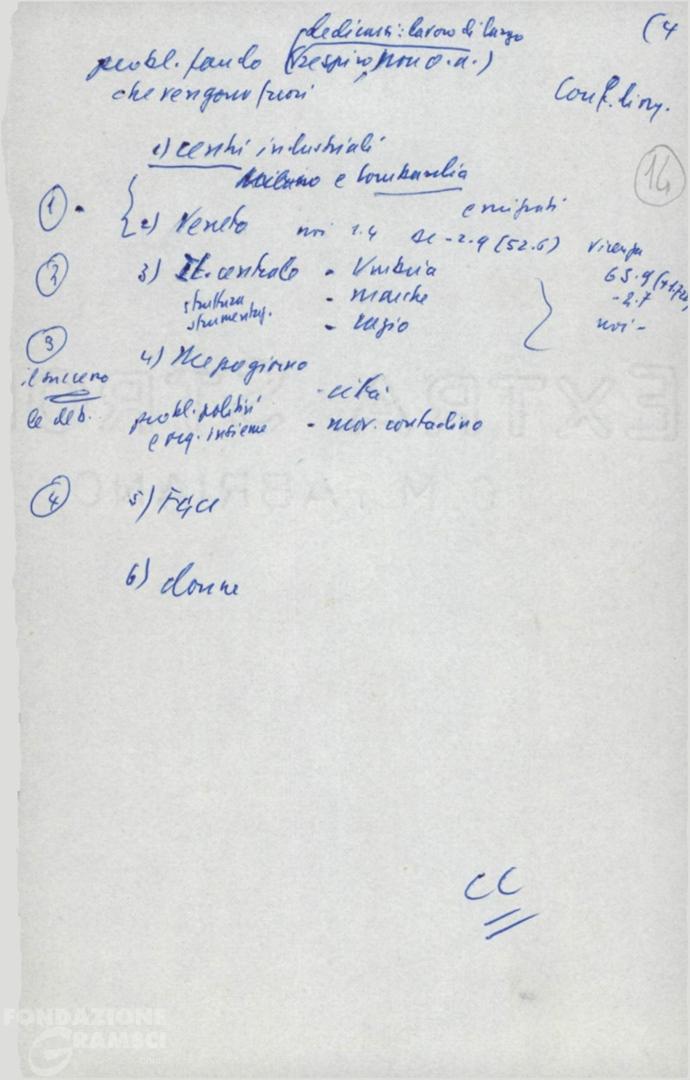 dedicarsi: lavoro di lungo (4
probl. fondo (respiro, non o.d.)
che vengono fuori
Conf.
14
1) centri industriali
Milano e Lombardia
1
emigrati
2) Veneto noi 1.4 DC -2.9 (52.6) Vicenza
2
3) It. centrale - Umbria 65.9
struttura - Marche -2.7
strumentaz. - Lazio noi -
3
4) Mezzogiorno
- città
le deb. probl. politici - mov. contadino
e org. insieme
4
5) FGCI
6) donne
CC
EXTRA STRO
C. M. FABRIANO
FONDAZIONE
GRAMSCI